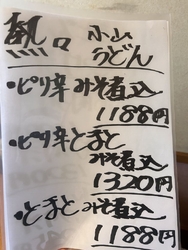 小山
うどん
・ピリ辛みそ煮込
1188円
・ピリ辛とまと
みそ煮込
1320円
・とまとみそ煮込
1188円